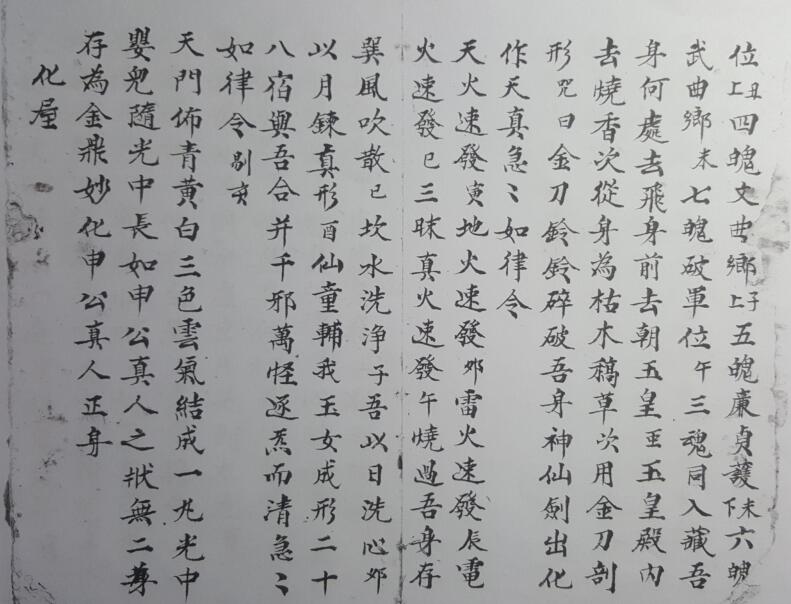 位丑上四魄文曲鄉子上五魄廉貞護未下六魄
武曲鄉未七魄破軍位午三魂同入藏吾
身何處去飛身前去朝玉皇玉玉皇殿內
去燒香次從身為枯木稿草次用金刀剖
形咒曰金刀鈴鈴碎破吾身神仙劍出化
作天真急〻如律令
天火速發寅地火速發卯雷火速發辰電
火速發巳三昧真火速發午燒過吾身存
巽風吹散已坎水洗淨子吾以日洗心卯
以月鍊真形酉仙童輔我玉女成形二十
八宿與吾合并千邪萬怪逐炁而清急〻
如律令剔亥
天門佈青黃白三色雲氣結成一丸光中
嬰兒隨光中長如申公真人之狀無二尊
存為金鼎妙化申公真人正身
化屋